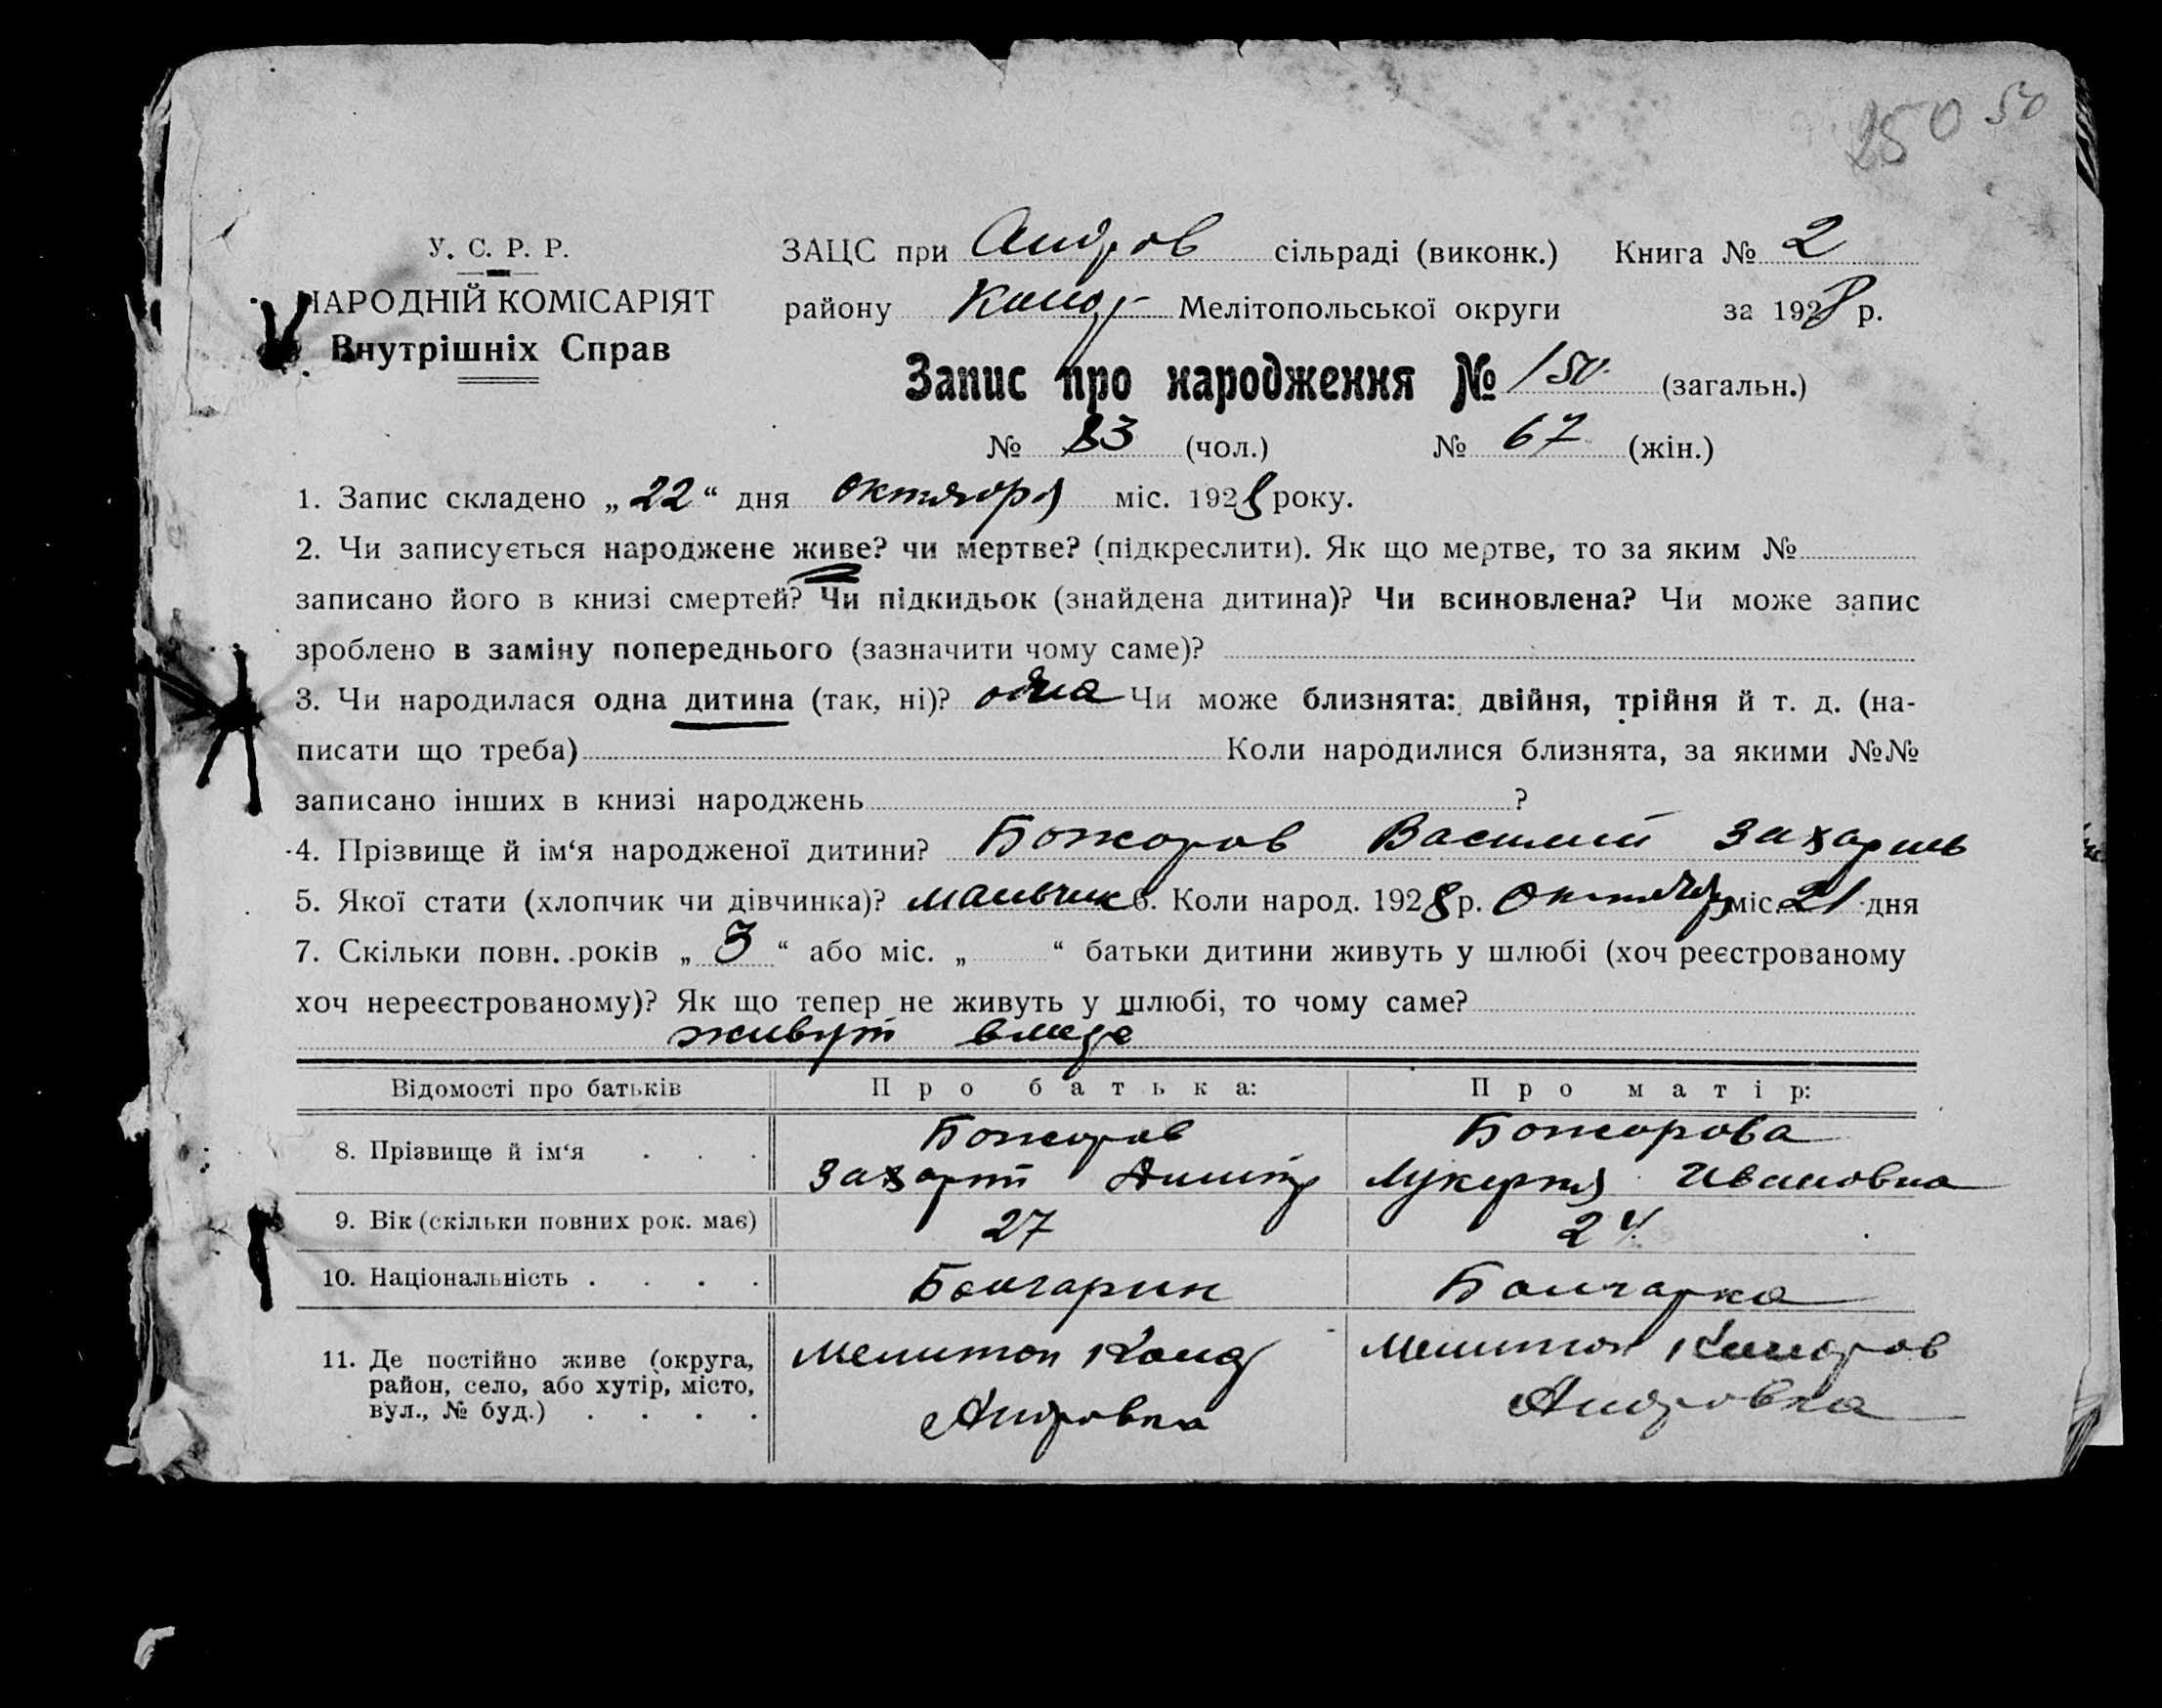 250 50
У. С. Р. Р.
НАРОДНІЙ КОМІСАРІЯТ
Внутрішніх Справ
ЗАЦС при Андров сільраді (виконк.) Книга № 2
району Мелітопольської округи за 1928 р.
Запис про народження № 150 (загальн.)
№ 83 (чол.) № 67 (жін.)
1. Запис складено „22“ дня октября міс. 1928 року.
2. Чи записується народжене живе? чи мертве? (підкреслити). Як що мертве, то за яким №
записано його в книзі смертей? Чи підкидьок (знайдена дитина)? Чи всиновлена? Чи може запис
зроблено в заміну попереднього (зазначити чому саме)?
3. Чи народилася одна дитина (так, ні)? одна Чи може близнята: двійня, трійня й т. д. (на-
писати що треба) Коли народилися близнята, за якими №№
записано інших в книзі народжень ?
4. Прізвище й ім‘я народженої дитини? Божоров Василий
5. Якої стати (хлопчик чи дівчинка)? мальчик 6. Коли народ. 1928 р. Октября міс. 21 дня
7. Скільки повн. років „3“ або міс. „ “ батьки дитини живуть у шлюбі (хоч реєстрованому
хоч нереєстрованому)? Як що тепер не живуть у шлюбі, то чому саме?
живут
Відомості про батьків Про батька: Про матір:
8. Прізвище й ім‘я Божоров Божорова
Захарий Димитр Лукерия Ивановна
9. Вік (скільки повних рок. має) 27 24
10. Національність Болгарин Болгарка
11. Де постійно живе (округа, район, село, або хутір, місто, вул., № буд.) Мелитоп Мелитоп
Андровка Андровка